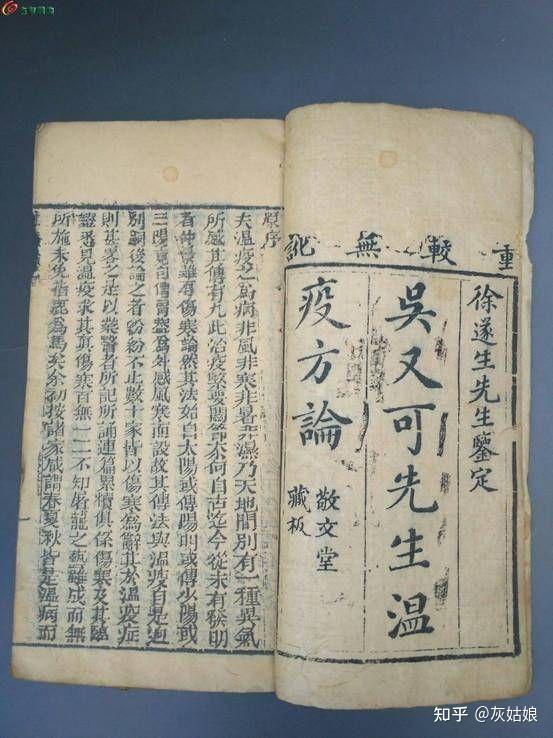 重較無訛
徐遂生先生鑒定
吳又可先生溫
疫方論
敬文堂
藏板
原序
夫溫疫之為病非風非寒非暑非濕乃天地間別有一種異氣
所感其傳有九此治疫緊要關節奈何自古迄今從未有發明
者仲景雖有傷寒論然其法始自太陽或傳陽明或傳少陽或
三陽竟自傳胃為外感風寒而設故其傳法與溫疫自是迥
別嗣後論之者紛紛不止數十家皆以傷寒為辭其於溫疫症
則甚畧之是以業醫者所記所誦連篇累牘俱係傷寒及其臨
證悉見溫疫求其真傷寒百無一二不知屠龍之藝雖成而無
所施未免指鹿為馬矣余初按諸家咸謂春夏秋皆是溫病而
知乎 @灰姑娘